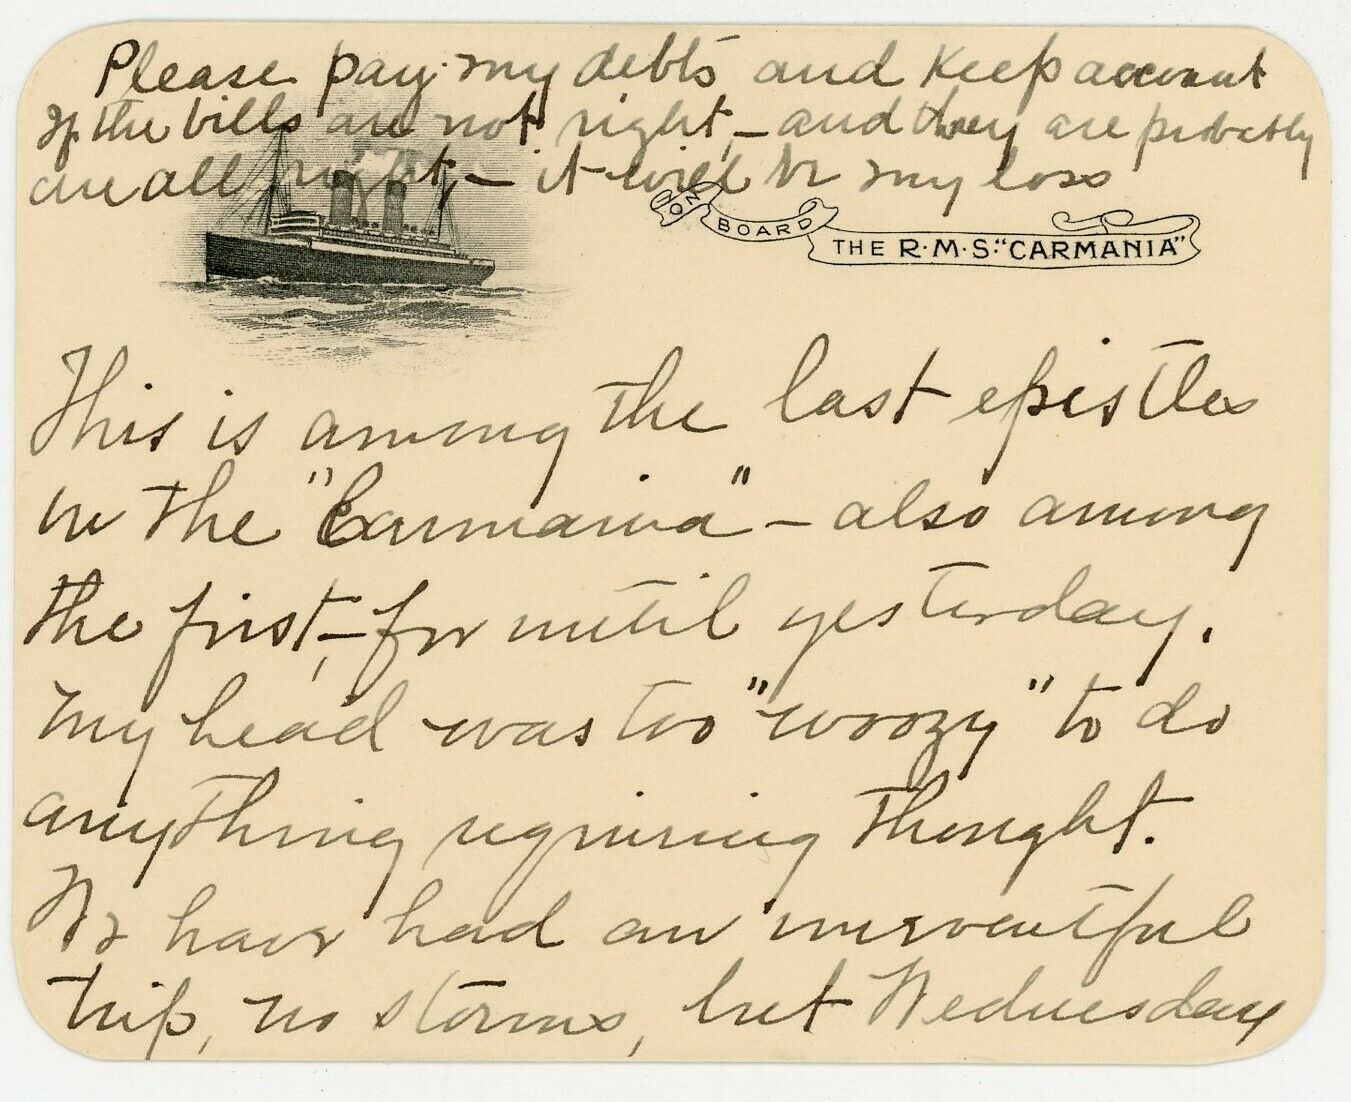 Please pay my debts and keep account
If the bills are not right, – and they are probably
are all right, – it will be my loss
ON BOARD
THE R·M·S·"CARMANIA"
This is among the last epistles
in the "Carmania" – also among
the first, – for until yesterday.
my head was too "woozy" to do
anything requiring thought.
We have had an uneventful
trip, no storms, but Wednesday